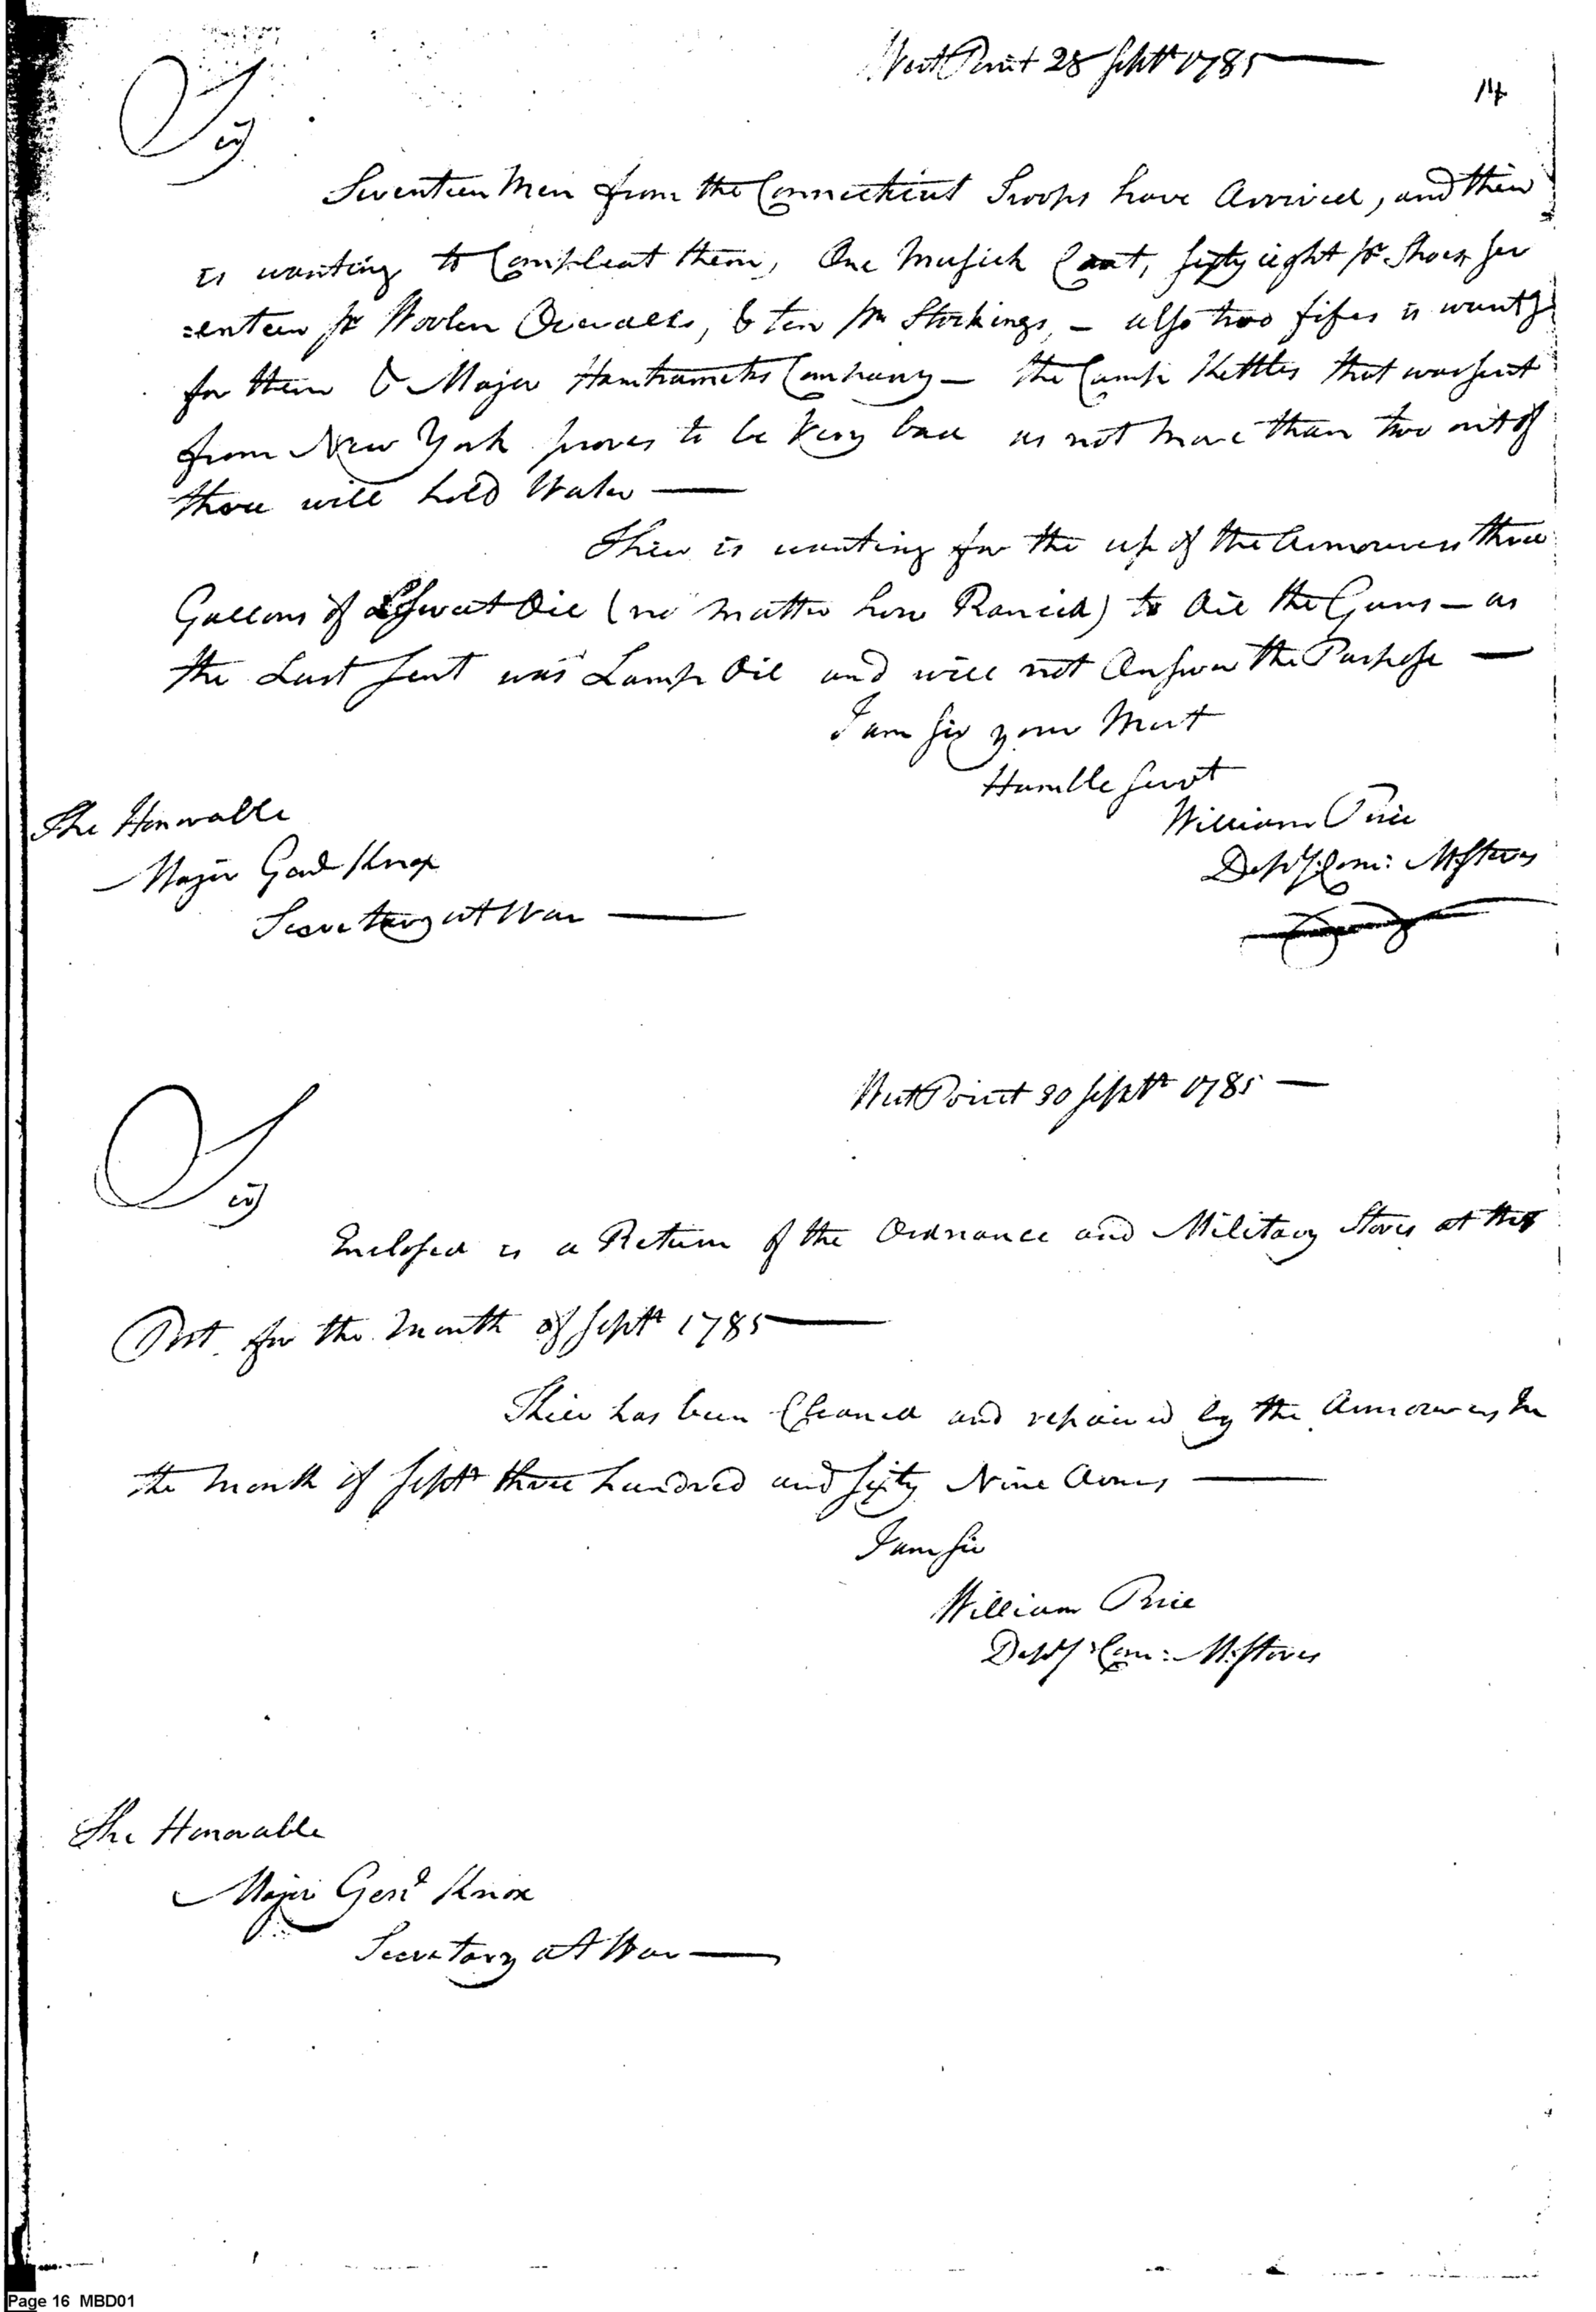 West Point 28 Septr 1785
14
Sir
Seventeen Men from the Connecticut Troops have Arrived, and their
is wanting to Compleat them, One Musick Coat, sixty eight pr Shoes sev
=enteen pr Woolen Overalls, & ten pr Stockings, – also two fifes is wantg
for them & Major Hamtramcks Company – the Camp Kettles that was sent
from New York proves to be Very bad as not more than two out of
three will hold Water —
Their is wanting for the use of the Armourers three
Gallons of Sweat Oil (no matter how Rancid) to Oil the Guns – as
the Last sent was Lamp Oil and will not Answer the Purpose —
I am Sir your Most
Humble Servt
William Price
Depy: Com: M. Stores
The Honorable
Major Genl Knox
Secretary at War —
West Point 30 Septr 1785 —
Sir
Enclosed is a Return of the Ordnance and Military Stores at this
Post for the Month of Septr 1785 —
Their has been Cleaned and repaired by the Armourers In
the Month of Septr three hundred and Sixty Nine Arms —
I am Sir
William Price
Depy: Com: M: Stores
The Honorable
Major Genl Knox
Secretary at War —
Page 16 MBD01